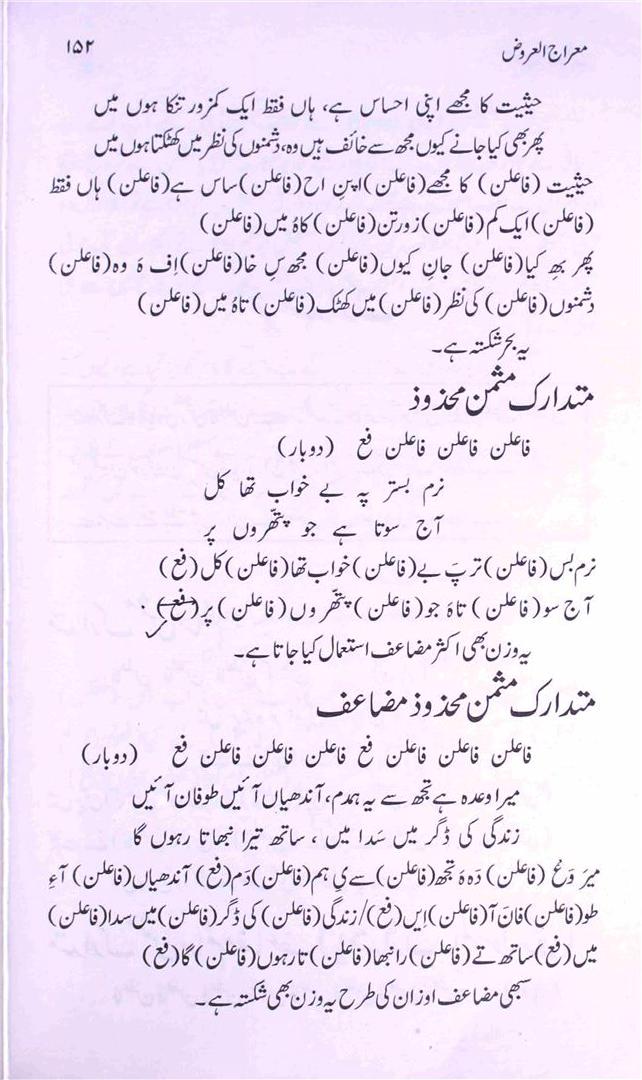 معراج العروض ۱۵۲
حیثیت کا مجھے اپنی احساس ہے، ہاں فقط ایک کمزور تنکا ہوں میں
پھر بھی کیا جانے کیوں مجھ سے خائف ہیں وہ، دشمنوں کی نظر میں کھٹکتا ہوں میں
حیثیت (فاعلن) کا مجھے (فاعلن) اپنِ اح (فاعلن) ساس ہے (فاعلن) ہاں فقط
(فاعلن) ایک کم (فاعلن) زور تن (فاعلن) کاہُ میں (فاعلن)
پھر بھِ کیا (فاعلن) جانِ کیوں (فاعلن) مجھ سِ خا (فاعلن) اِف ہَ وہ (فاعلن)
دشمنوں (فاعلن) کی نظر (فاعلن) میں کھٹک (فاعلن) تاہُ میں (فاعلن)
یہ بحر شکستہ ہے۔
متدارک مثمن محذوذ
فاعلن فاعلن فاعلن فع (دوبار)
نرم بستر پہ بے خواب تھا کل
آج سوتا ہے جو پتّھروں پر
نرم بس (فاعلن) تر پَ بے (فاعلن) خواب تھا (فاعلن) کل (فع)
آج سو (فاعلن) تاہَ جو (فاعلن) پتّھروں (فاعلن) پر (فع)
یہ وزن بھی اکثر مضاعف استعمال کیا جاتا ہے۔
متدارک مثمن محذوذ مضاعف
فاعلن فاعلن فاعلن فع فاعلن فاعلن فاعلن فع (دوبار)
میرا وعدہ ہے تجھ سے یہ ہمدم، آندھیاں آئیں طوفان آئیں
زندگی کی ڈگر میں سَدا میں، ساتھ تیرا نبھاتا رہوں گا
میرَ وَع (فاعلن) دَہ ہَ تجھ (فاعلن) سے یِ ہم (فاعلن) دَم (فع) آندھیاں (فاعلن) آءِ
طو (فاعلن) فانَ آ (فاعلن) اِیں (فع)/ زندگی (فاعلن) کی ڈگر (فاعلن) میں سدا (فاعلن)
میں (فع) ساتھ تے (فاعلن) را نبھا (فاعلن) تا رہوں (فاعلن) گا (فع)
سبھی مضاعف اوزان کی طرح یہ وزن بھی شکستہ ہے۔